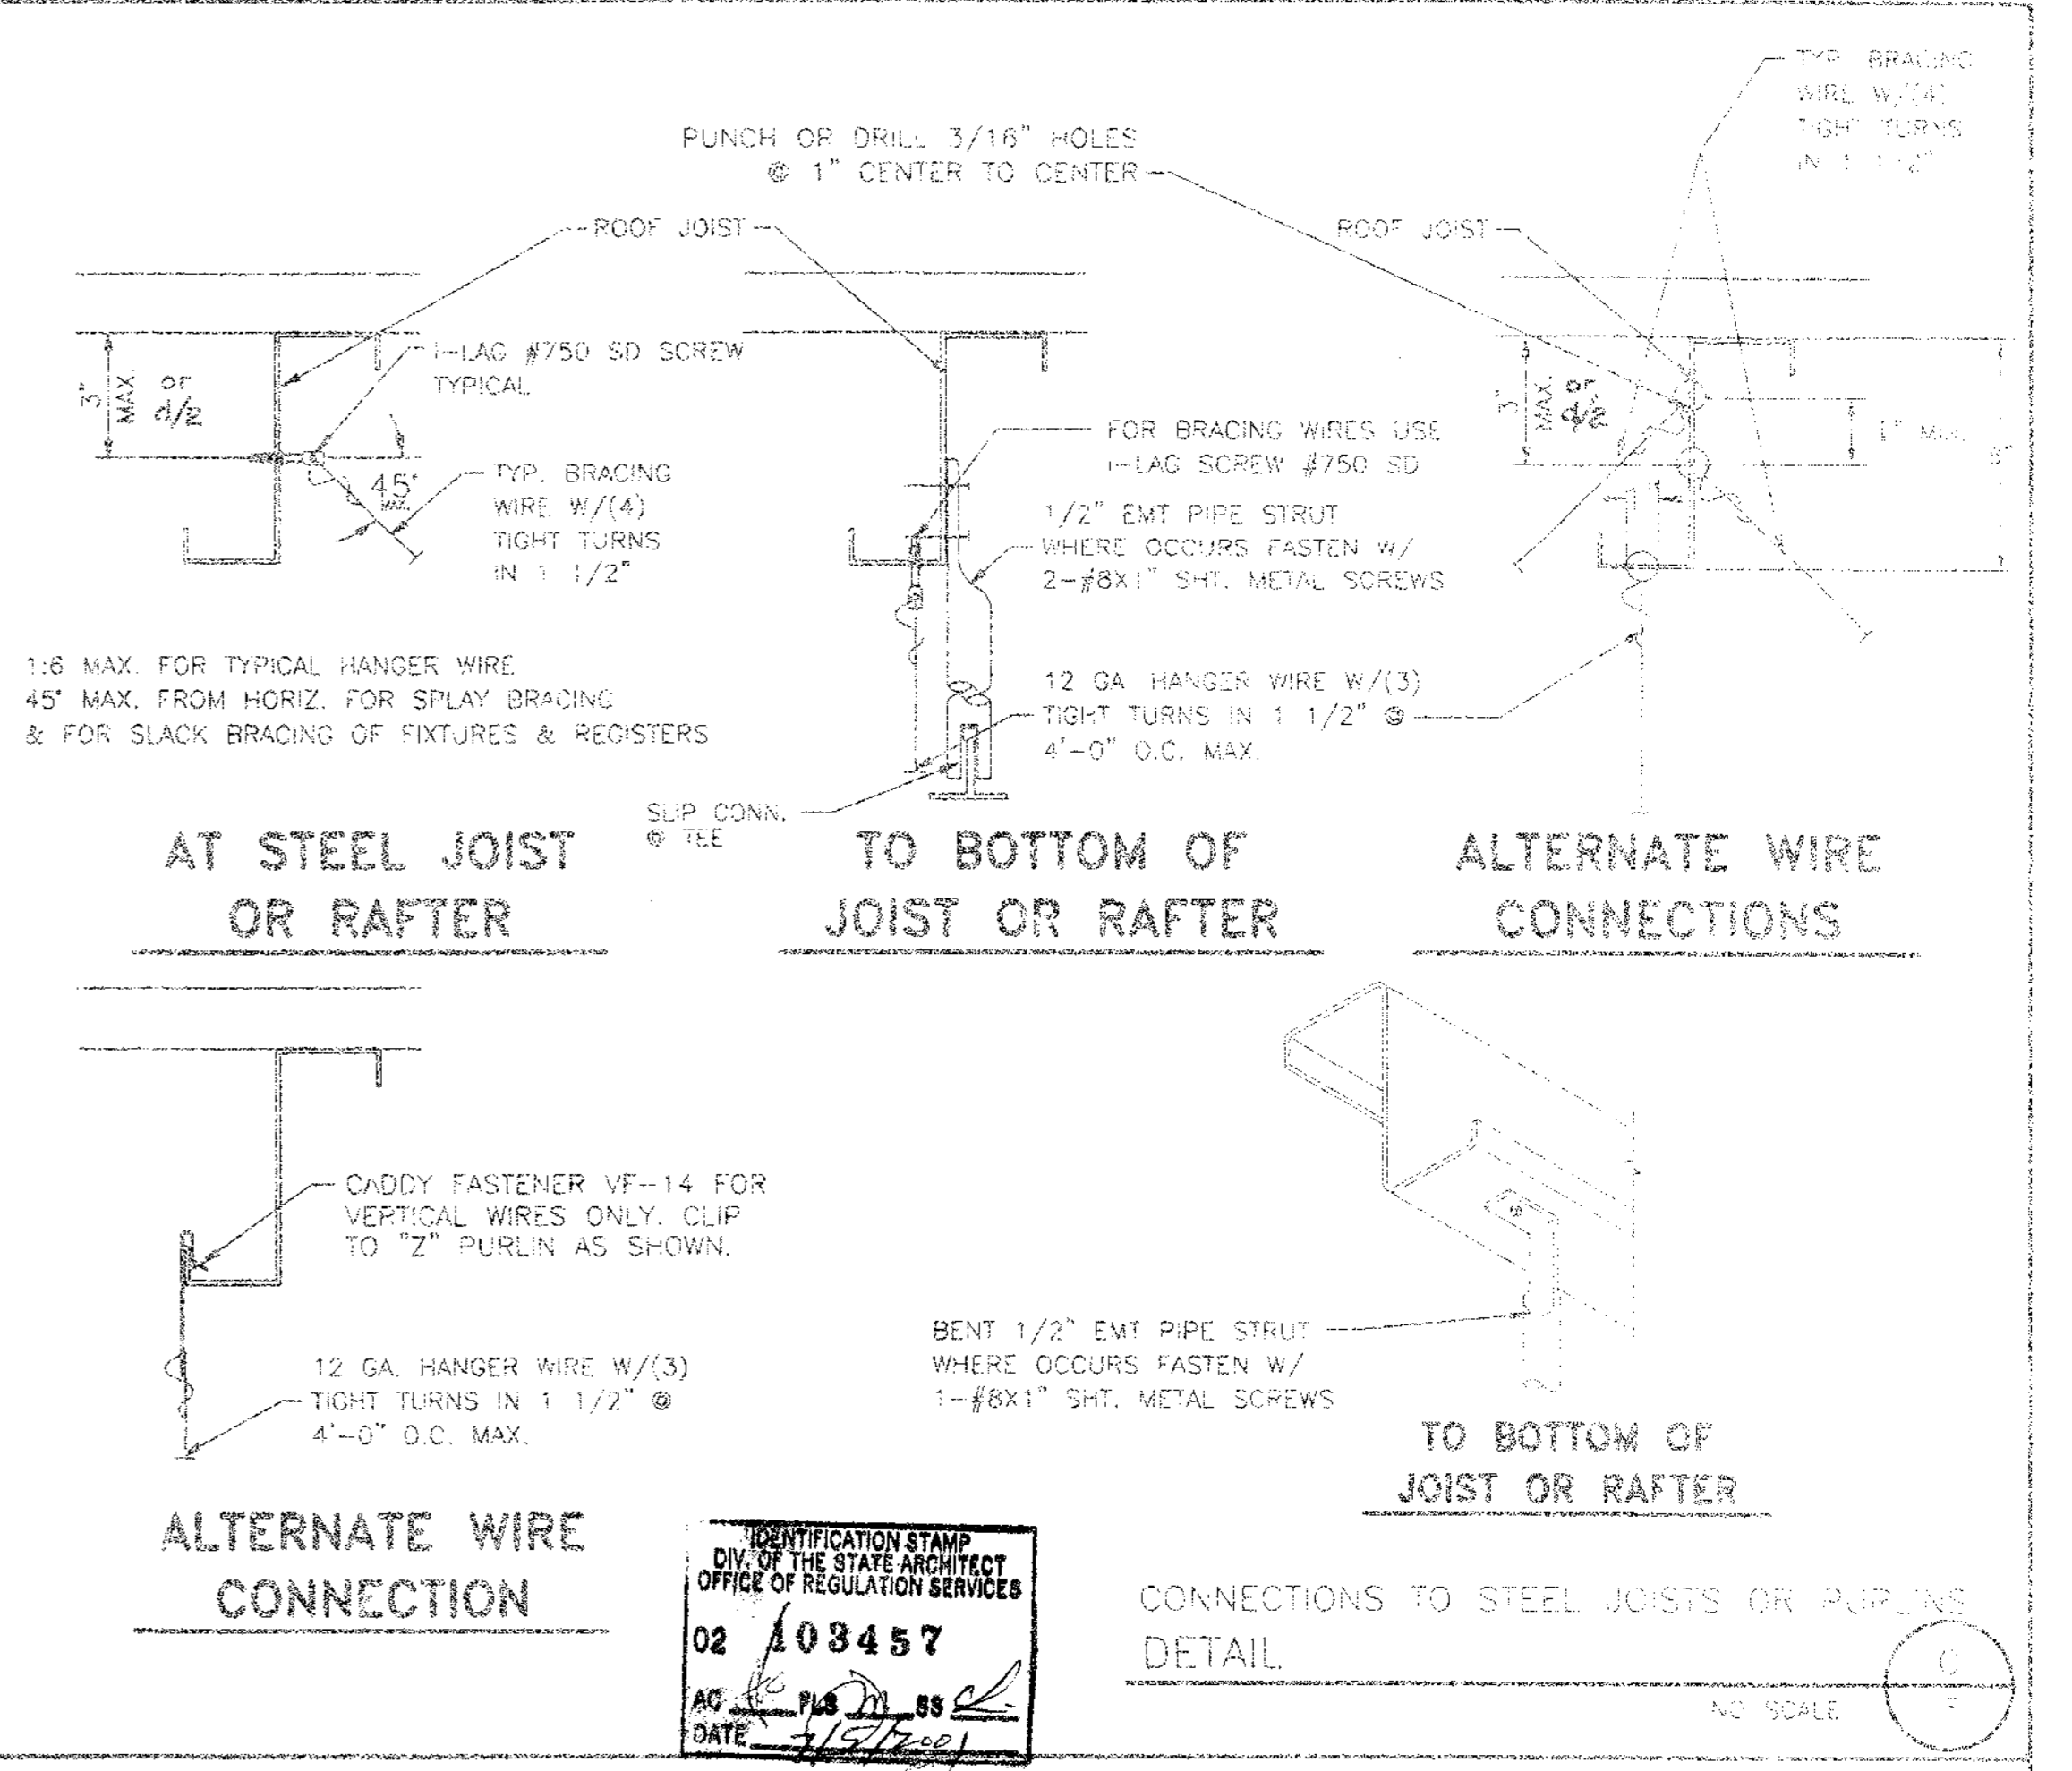 TYP. BRACING
WIRE W/(4)
TIGHT TURNS
IN 1 1/2"
PUNCH OR DRILL 3/16" HOLES
@ 1" CENTER TO CENTER
ROOF JOIST
ROOF JOIST
3"
MAX.
or
d/2
I-LAG #750 SD SCREW
TYPICAL
45°
MAX.
TYP. BRACING
WIRE W/(4)
TIGHT TURNS
IN 1 1/2"
FOR BRACING WIRES USE
I-LAG SCREW #750 SD
1/2" EMT PIPE STRUT
WHERE OCCURS FASTEN W/
2-#8X1" SHT. METAL SCREWS
3"
MAX.
or
d/2
1"
1:6 MAX. FOR TYPICAL HANGER WIRE
45° MAX. FROM HORIZ. FOR SPLAY BRACING
& FOR SLACK BRACING OF FIXTURES & REGISTERS
12 GA HANGER WIRE W/(3)
TIGHT TURNS IN 1 1/2" @
4'-0" O.C. MAX.
SLIP CONN.
@ TEE
AT STEEL JOIST
OR RAFTER
TO BOTTOM OF
JOIST OR RAFTER
ALTERNATE WIRE
CONNECTIONS
CADDY FASTENER VF-14 FOR
VERTICAL WIRES ONLY. CLIP
TO "Z" PURLIN AS SHOWN.
12 GA. HANGER WIRE W/(3)
TIGHT TURNS IN 1 1/2" @
4'-0" O.C. MAX.
ALTERNATE WIRE
CONNECTION
BENT 1/2" EMT PIPE STRUT
WHERE OCCURS FASTEN W/
1-#8X1" SHT. METAL SCREWS
TO BOTTOM OF
JOIST OR RAFTER
IDENTIFICATION STAMP
DIV. OF THE STATE ARCHITECT
OFFICE OF REGULATION SERVICES
02 103457
AC FLS SS
DATE 7/5/2001
CONNECTIONS TO STEEL JOISTS OR PURLINS
DETAIL
NO SCALE